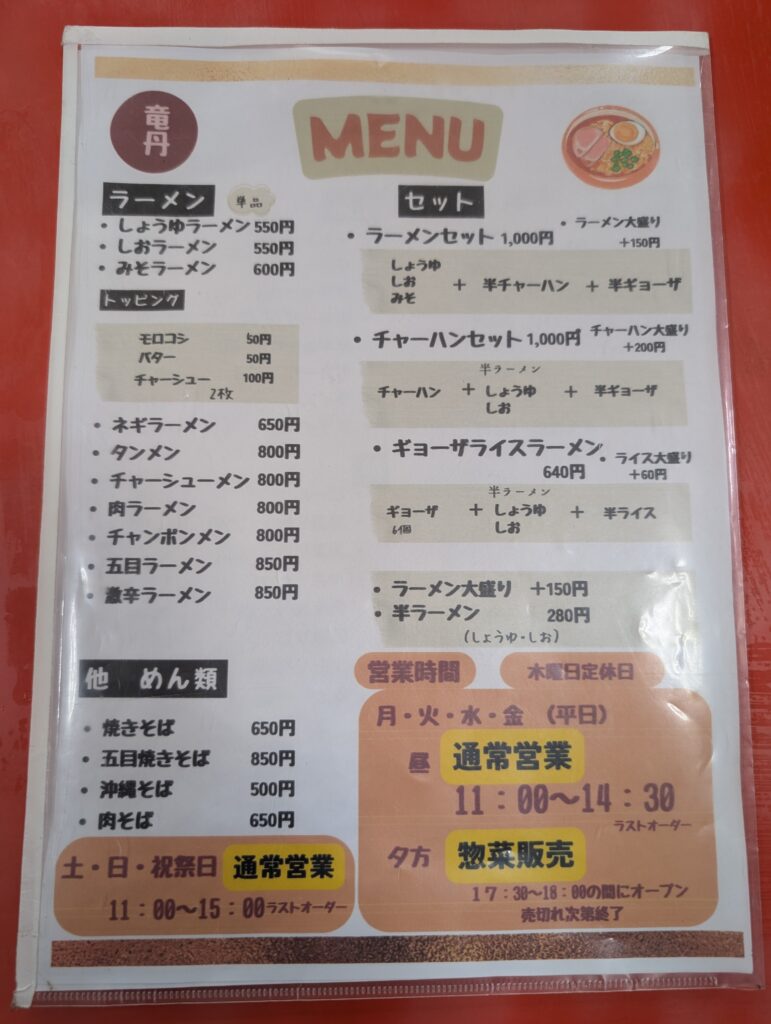 竜丹
MENU
ラーメン 単品
・しょうゆラーメン 550円
・しおラーメン 550円
・みそラーメン 600円
トッピング
モロコシ 50円
バター 50円
チャーシュー 100円
2枚
・ネギラーメン 650円
・タンメン 800円
・チャーシューメン 800円
・肉ラーメン 800円
・チャンポンメン 800円
・五目ラーメン 850円
・激辛ラーメン 850円
他 めん類
・焼きそば 650円
・五目焼きそば 850円
・沖縄そば 500円
・肉そば 650円
土・日・祝祭日 通常営業
11:00〜15:00ラストオーダー
セット
・ラーメンセット 1,000円
・ラーメン大盛り
+150円
しょうゆ
しお
みそ
+ 半チャーハン + 半ギョーザ
・チャーハンセット 1,000円
・チャーハン大盛り
+200円
半ラーメン
チャーハン + しょうゆ + 半ギョーザ
しお
・ギョーザライスラーメン
640円
・ライス大盛り
+60円
半ラーメン
ギョーザ + しょうゆ + 半ライス
6個 しお
・ラーメン大盛り +150円
・半ラーメン 280円
(しょうゆ・しお)
営業時間 木曜日定休日
月・火・水・金 (平日)
昼 通常営業
11:00〜14:30
ラストオーダー
夕方 惣菜販売
17:30〜18:00の間にオープン
売切れ次第終了